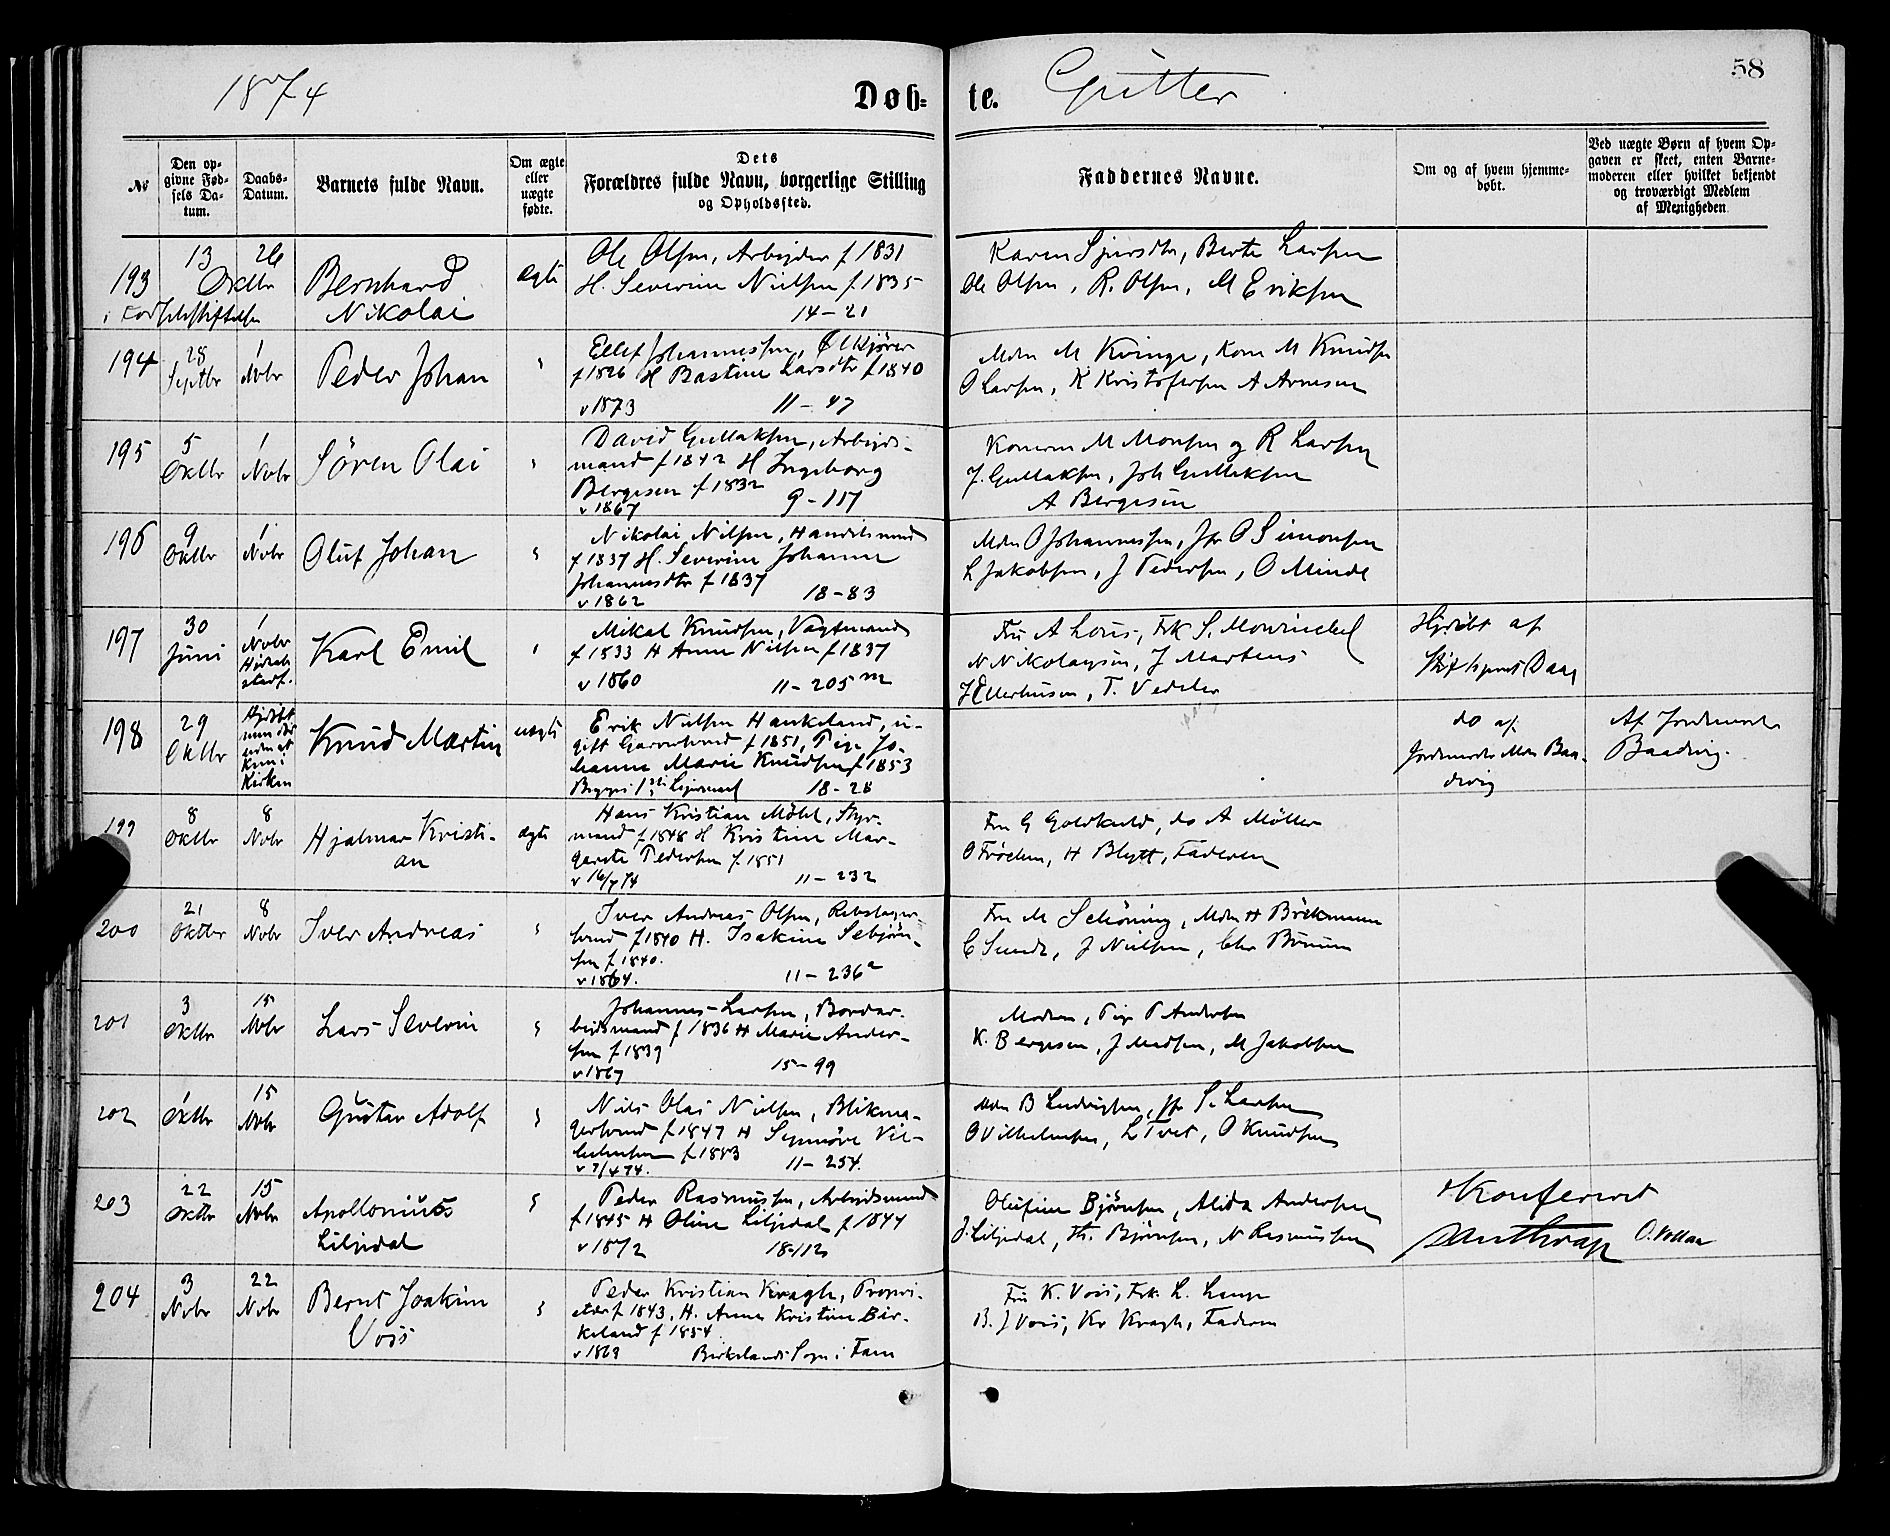 1874
Døb-
te.
Gutter
58
No
Den opgivne Fødsels Datum.
Daabs-Datum.
Barnets fulde Navn.
Om ægte eller uægte fødte.
Dets
Forældres fulde Navn, borgerlige Stilling
og Opholdssted.
Faddernes Navne.
Om og af hvem hjemmedøbt.
Ved uægte Børn af hvem Opgaven er skeet, enten Barnemoderen eller hvilket bekjendt og troværdigt Medlem af Menigheden
193
13
26
Oktbr
i Fødselsstiftelsen
Bernhard
Nikolai
ægte
Ole Olsen, Arbeider f 1831
H. Severine Nielsen f. 1835
14-21
Karen Sjursdtr, Berte Larsen
Ole Olsen, R. Olsen, M Eriksen
194
28
Septbr
1
Nvbr
Peder Johan
"
Ellef Johannessen,
f 1826 H Bastine Larsdtr f 1840
v 1873
11-47
Mdm M Kvinge, Kone M Knudsen
O Larsen, K Kristofersen A Arnesen
195
5
Oktbr
1
Novbr
Søren Olai
"
David Gullaksen, Arbeids-
mand f 1842 H Ingeborg
Bergesen f 1832
v 1867
9-117
Konerne M Monsen og R Larsen
J. Gullaksen, Joh Gullaksen
A Bergesen
196
9
Oktbr
1
Novbr
Oluf Johan
"
Nikolai Nilsen, Handelsmand
f 1837 H. Severine Johanne
Johannesdtr f 1837
v 1862
18-83
Mdm O Johannessen, Jfr O Simonsen
L Jakobsen, J Pedersen, O Minde
197
30
Juni
1
Novbr
Karl Emil
"
Mikal Knudsen, Vagtmand
f 1833 H Anne Nilsen f 1837
v 1860
11-205 m
Fru A Lous, Frk S. Mowinckel
N Nikolaysen, J Martens
J Ellerhusen, T. Vedeler
Hjdøbt af
Stiftsprovst Daae
198
29
Oktbr
Hjdøbt
Kirken
Knud Martin
uægte
Erik Nielsen Haukeland, u-
gift Garversvend f 1851, Pige Jo-
hanne Marie Knudsen f 1853
Begges 1ste Leiermaal
18-28
do af
Jordemoder Mdm Baa-
dvig
Af Jordemoder
Baadvig.
199
8
Oktbr
8
Novbr
Hjalmar Kristi-
an
ægte
Hans Kristian Møhl, Styr-
mand f 1848 H Kristine Mar-
garete Pedersen f. 1851
v 16/7 74
11-232
Fru G Goldkuhl, do A Møller
O Frøchen, H Blytt, Faderen
200
21
Oktbr
8
Novbr
Iver Andreas
"
Iver Andreas Olsen, Rebslager-
svend f 1840 H. Isakine Sebjøn-
sen f 1840.
v 1864.
11-236a
Fru M Schöning, Mdm H Böckmann
C Sunde, J Nielsen, Chr Bruun
201
3
Oktbr
15
Novbr
Lars Severin
"
Johannes Larsen, Bordar-
beidsmand f 1836 H Marie Ander-
sen f 1839
v 1867
15-99
Moderen, Pige P Andersen
K. Bergesen, J Madsen, M Jakobsen
202
1
Oktbr
15
Novbr
Gustav Adolf
"
Nils Olai Nielsen, Blikma-
gersvend f 1847 H Synnøve Vil-
helmsen f 1843
v 7/4 74.
11-254.
Mdm B Ludvigsen, Jfr S. Larsen
O Vilhelmsen, L Tvet, O Knudsen
203
22
Oktbr
15
Novbr
Apollonius
Liljedal
"
Peder Rasmussen, Arbeidsmand
f 1845 H Oline Liljedal f 1844
v 1872
18-112
Olufine Bjørnsen, Alida Andersen
J. Liljedal, Th. Bjørnsen, N Rasmussen
Konfereret
204
3
Novbr
22
Novbr
Bernt Joakim
Vois
"
Peder Kristian Kragh, Propri-
etær f 1843, H. Anna Kristine Bir-
keland f 1854
v 1869
Birkelands Sogn i Fane
Fru K. Vois, Frk. L. Lange
B. J Vois, Kr Kragh, Faderen